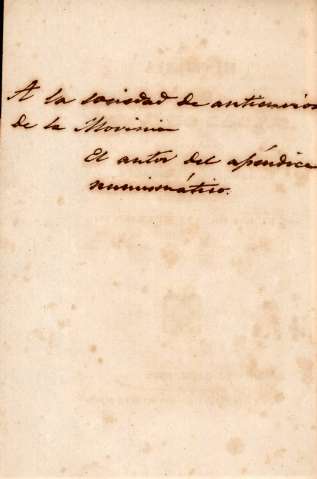 A la sociedad de anticuarios
de la Morinia
El autor del apéndice
numismático.